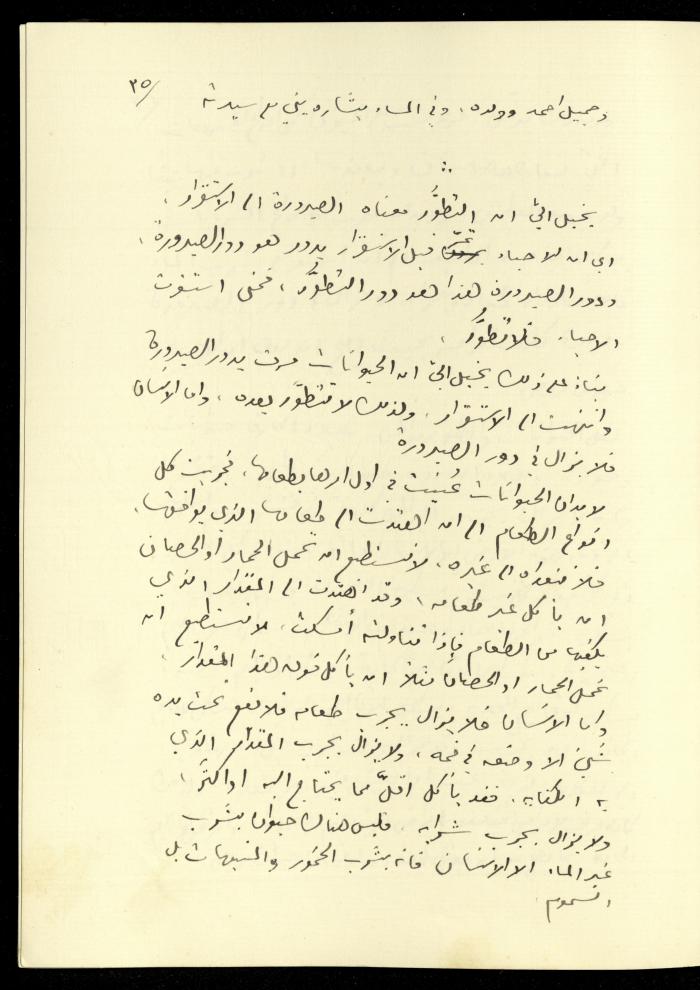 ٣٥/
وجميل احمد وولده، وفي المساء بشاره يني مع سيدته
يخيل اليّ ان التطوُّر معناه الصيرورة الى الاستقرار،
اي ان للاحياء قبل الاستقرار بدور هو دور الصيرورة،
ودور الصيرورة هذا هو دور التطوُّر، فمتى استقرت
الاحياء فلا تطوُّر.
بناءً على ذلك يخيل اليّ ان الحيوانات مرت بدور الصيرورة
وانتهت الى الاستقرار، ولذلك لا تتطوَّر بعده، واما الانسان
فلا يزال في دور الصيرورة
لا بد ان الحيوانات عُنيت في اول امرها بطعامها، فجربت كل
انواع الطعام الى ان اهتدت الى طعامها الذي يوافقها،
فلا تتعداه الى غيره، لا تستطيع ان تحمل الحمار او الحصان
ان يأكل غير طعامه، وقد اهتدت الى المقدار الذي
يكفيها من الطعام فإذا تناولته أمسكت، لا تستطيع ان
تحمل الحمار او الحصان مثلاً ان يأكل فوق هذا المقدار،
واما الانسان فلا يزال يجرب طعامه فلا تقع تحت يده
شيئ الا وضعه في فمه، ولا يزال يجرب المقدار الذي
به اكتفاؤه، فقد يأكل اقلّ مما يحتاج اليه او اكثر،
ولا يزال يجرب شرابه، فليس هناك حيوان يشرب
غير الماء الا الانسان فانه يشرب الخمور والمنبهات بل
السموم